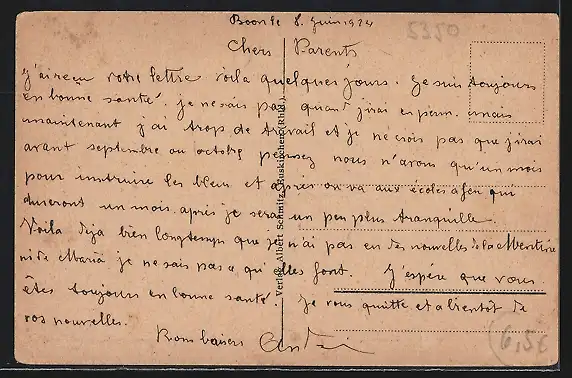 Boon le 8. Juin 1924
5350
Chers Parents
J'ai reçu votre lettre voila quelques jours. Je suis toujours
en bonne santé. je ne sais pas quand j'irai en perm. mais
maintenant j'ai trops de travail et je ne crois pas que j'irai
avant septembre ou octobre pensez nous n'avons qu'un mois
pour instruire les bleus et après on va aux écoles à feu qui
dureront un mois. après je serai un peu plus tranquille.
Voila déja bien longtemps que je n'ai pas eu des nouvelles de la
ni de Maria je ne sais pas qu'elles font. J'espére que vous
êtes toujours en bonne santé. Je vous quitte et a bientôt de
vos nouvelles.
Bons baisers
Verlag Albert Schmitz, Euskirchen (Rhld.)
6,56